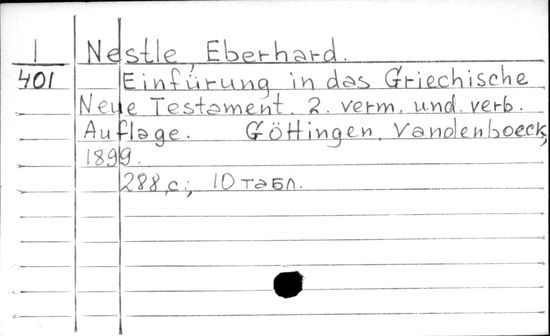 I Nestle, Eberhard.
401 Einfürung in das Griechische
Neue Testament. 2. verm. und. verb.
Auflage. Göttingen, Vandenboeck,
1899.
288,с.; 10 табл.